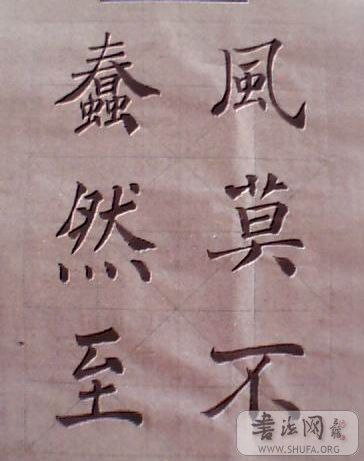 風莫不
蠢然至
書法网
WWW.SHUFA.ORG